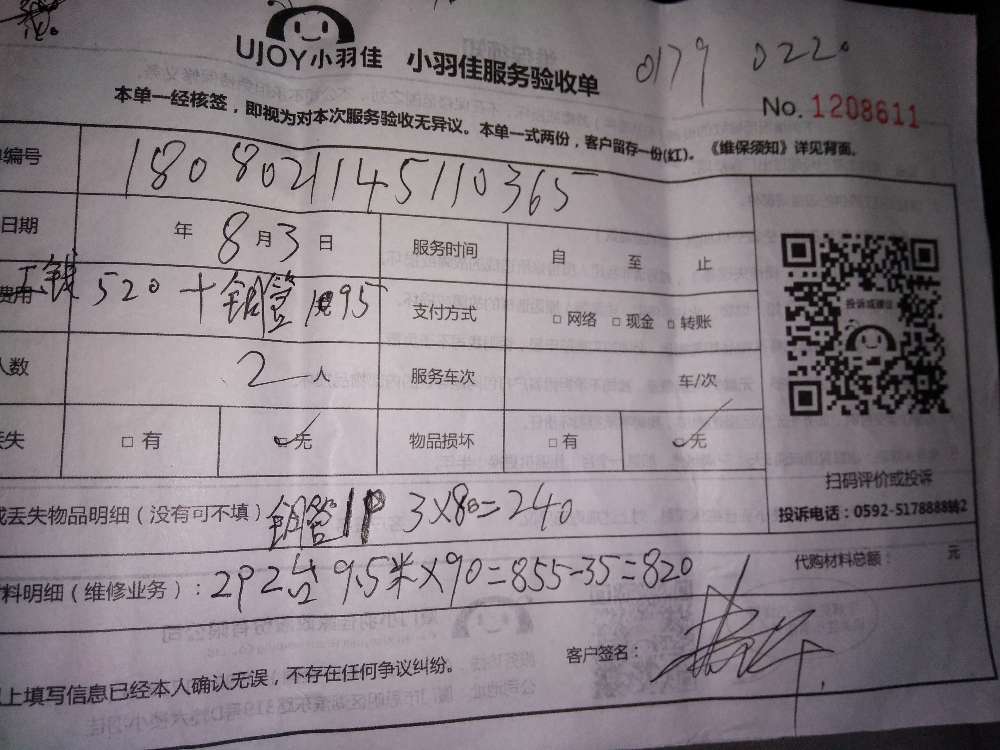 UJOY小羽佳 小羽佳服务验收单
0179 0220
No. 1208611
本单一经核签，即视为对本次服务验收无异议。本单一式两份，客户留存一份(红)。《维保须知》详见背面。
编号 1808021145110365
日期 年 8月3日 服务时间 自 至 止
费用 工钱 520+铜管 1095 支付方式 □网络 □现金 □转账
人数 2人 服务车次 车/次
丢失 □有 ✓无 物品损坏 □有 ✓无
投诉或建议
扫码评价或投诉
投诉电话：0592-5178888转2
或丢失物品明细（没有可不填） 铜管1P 3×80=240
材料明细（维修业务）：2P2台 9.5米×90=855-35=820 代购材料总额： 元
以上填写信息已经本人确认无误，不存在任何争议纠纷。 客户签名：